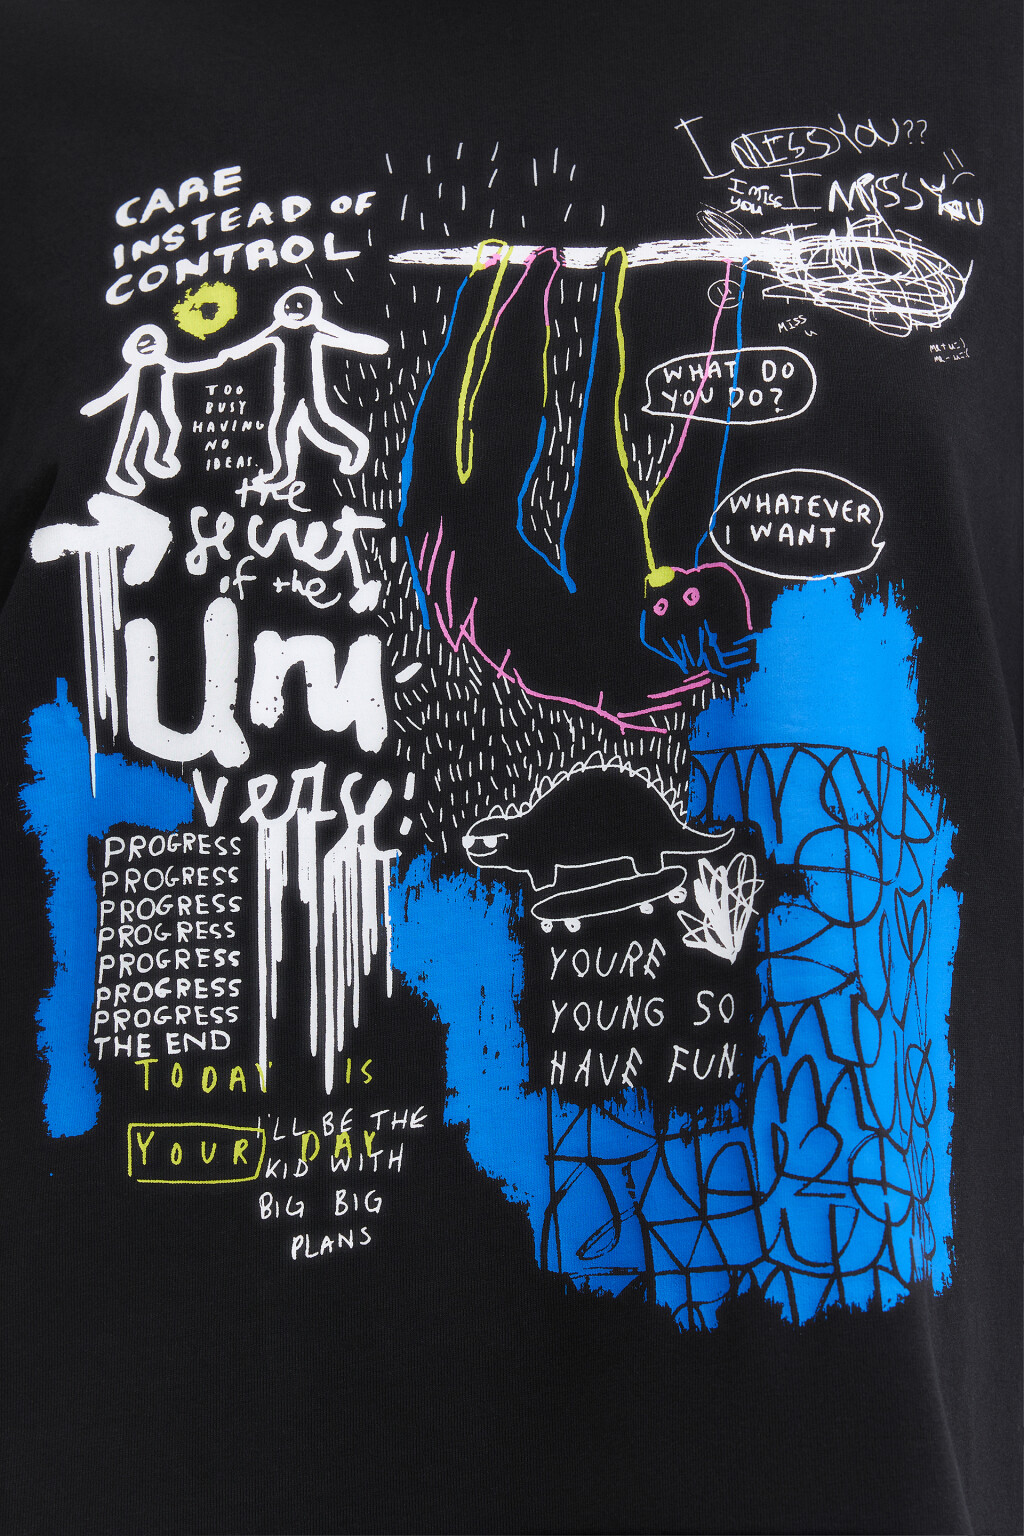 I MISS YOU??
I MISS YOU
I MISS
YOU
CARE
INSTEAD OF
CONTROL
MISS
U
WHAT DO
YOU DO?
TOO
BUSY
HAVING
NO
IDEAS.
the
secret
of the
Uni-
verse!
WHATEVER
I WANT
PROGRESS
PROGRESS
PROGRESS
PROGRESS
PROGRESS
PROGRESS
PROGRESS
THE END
YOURE
YOUNG SO
HAVE FUN
TODAY IS
YOUR DAY
I'LL BE THE
KID WITH
BIG BIG
PLANS